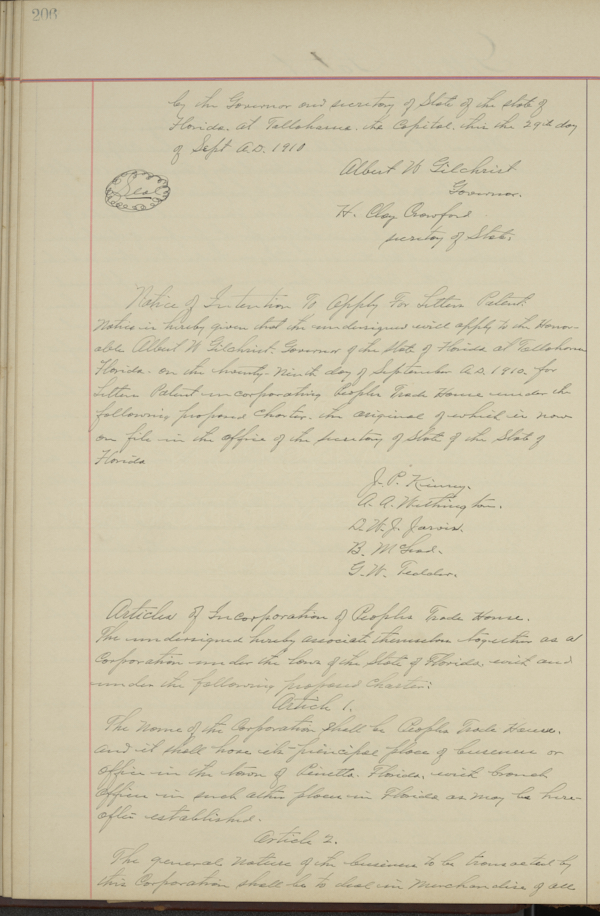 206
by the Governor and secretary of State of the state of
Florida. at Tallahassee. the Capital. this the 29th day
of Sept A.D. 1910
Seal
Albert W Gilchrist
Governor.
H. Clay Crawford
secretary of State.
Notice of Intention To Apply For Letters Patent.
Notice is hereby given that the undersigned will apply to the Honor-
able Albert W Gilchrist. Governor of the State of Florida at Tallahassee
Florida. on the twenty-Ninth day of September A.D. 1910. for
Letters Patent incorporating Peoples Trade House under the
following proposed Charter. the original of which is now
on file in the office of the secretary of State of the State of
Florida
J. P. Kinny.
A. A. Withington.
D. W. J. Jarvis.
B. McLeod.
G. W. Tedder.
Articles of Incorporation of Peoples Trade House.
The undersigned hereby associate themselves together as a
Corporation under the laws of the State of Florida, with and
under the following proposed Charter:
Article 1.
The Name of the Corporation shall be Peoples Trade House.
and it shall have its principal place of business or
office in the town of Pinetta. Florida, with branch
offices in such other places in Florida as may be here-
after established.
Article 2.
The general nature of the business to be transacted by
this Corporation shall be to deal in Merchandise of all